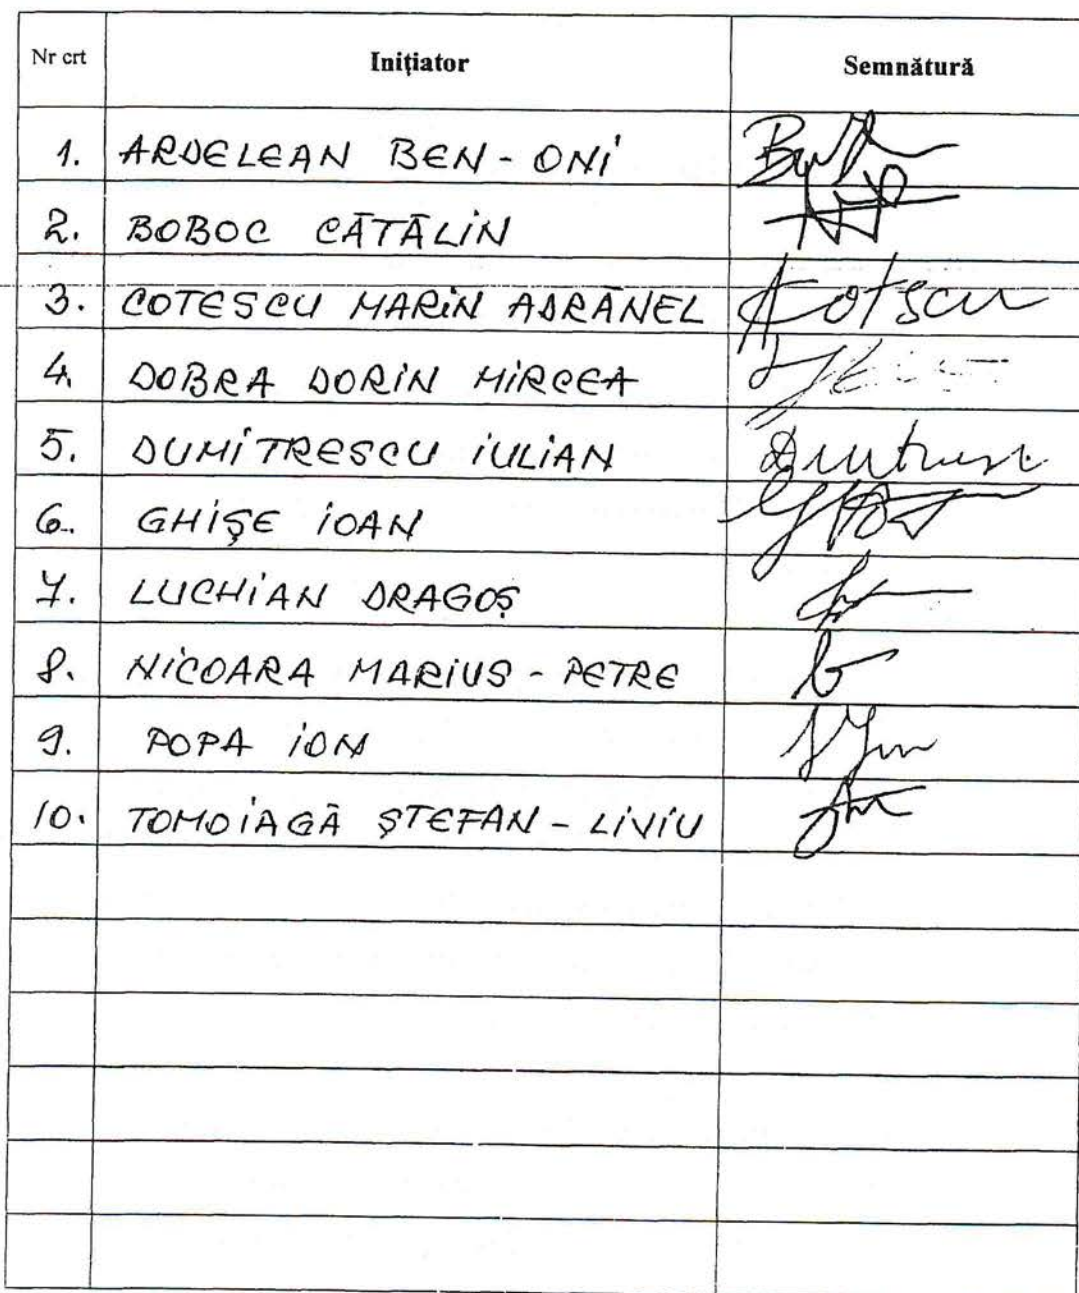 Nr crt Inițiator Semnătură
1. ARDELEAN BEN-ONI
2. BOBOC CĂTĂLIN
3. COTESCU MARIN ADRĂNEL Cotscu
4. DOBRA DORIN MIRCEA
5. DUMITRESCU IULIAN
6. GHIȘE IOAN
7. LUCHIAN DRAGOȘ
8. NICOARA MARIUS-PETRE
9. POPA ION
10. TOMOIAGĂ ȘTEFAN-LIVIU